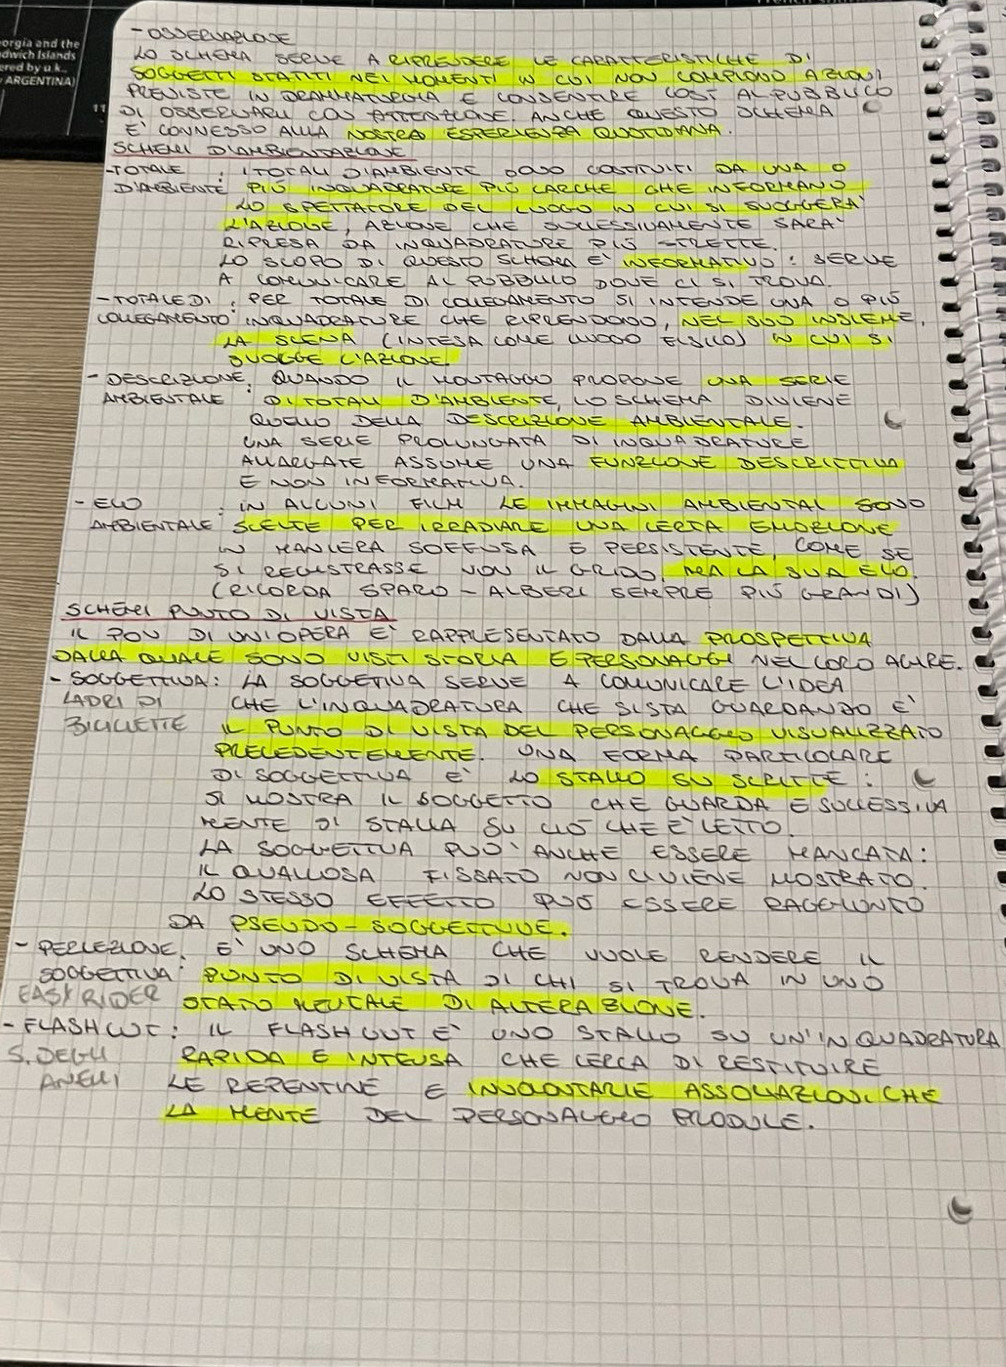 orgia and the
dwich Islands
ered by u.k.
ARGENTINA)
11
- OSSERVAZIONE
LO SCHEMA SERVE A RIPRENDERE LE CARATTERISTICHE DI
SOGGETTI STATICI NEI MOMENTI IN CUI NON COMPIONO AZIONI
PREVISTE IN DRAMMATURGIA E CONSENTIRE COSÌ AL PUBBLICO
DI OSSERVARLI CON ATTENZIONE. ANCHE QUESTO SCHEMA
E' CONNESSO ALLA NOSTRA ESPERIENZA QUOTIDIANA.
SCHEMI D'AMBIENTAZIONE
- TOTALE : I TOTALI D'AMBIENTE SONO COSTITUITI DA UNA O
D'AMBIENTE PIÙ INQUADRATURE PIÙ LARGHE CHE INFORMANO
LO SPETTATORE DEL LUOGO IN CUI SI SVOGGERA'
L'AZIONE, AZIONE CHE SUCCESSIVAMENTE SARA'
RIPRESA DA INQUADRATURE PIÙ STRETTE.
LO SCOPO DI QUESTO SCHEMA E' INFORMATIVO: SERVE
A COMUNICARE AL PUBBLICO DOVE CI SI TROVA.
- TOTALE DI : PER TOTALE DI COLLEGAMENTO SI INTENDE UNA O PIÙ
COLLEGAMENTO INQUADRATURE CHE RIPRENDONO, NEL SUO INSIEME,
LA SCENA (INTESA COME LUOGO FISICO) IN CUI SI
SVOLGE L'AZIONE.
- DESCRIZIONE : QUANDO IL MONTAGGIO PROPONE UNA SERIE
AMBIENTALE DI TOTALI D'AMBIENTE, LO SCHEMA DIVIENE
QUELLO DELLA DESCRIZIONE AMBIENTALE.
UNA SERIE PROLUNGATA DI INQUADRATURE
ALLARGATE ASSUME UNA FUNZIONE DESCRITTIVA
E NON INFORMATIVA.
- ECO : IN ALCUNI FILM LE IMMAGINI AMBIENTALI SONO
AMBIENTALE SCELTE PER IRRADIARE UNA CERTA EMOZIONE
IN MANIERA SOFFUSA E PERSISTENTE, COME SE
SI REGISTRASSE NON IL GRIDO, MA LA SUA ECO.
(RICORDA SPARO - ALBERI SEMPRE PIÙ GRANDI)
SCHEMI PUNTO DI VISTA
IL POV DI UN'OPERA E' RAPPRESENTATO DALLA PROSPETTIVA
DALLA QUALE SONO VISTI STORIA E PERSONAGGI NEL LORO AGIRE.
- SOGGETTIVA: LA SOGGETTIVA SERVE A COMUNICARE L'IDEA
LADRI DI CHE L'INQUADRATURA CHE SI STA GUARDANDO E'
BICICLETTE IL PUNTO DI VISTA DEL PERSONAGGIO VISUALIZZATO
PRECEDENTEMENTE. UNA FORMA PARTICOLARE
DI SOGGETTIVA E' LO STALLO SU SCRITTE:
SI MOSTRA IL SOGGETTO CHE GUARDA E SUCCESSIVA
MENTE SI STALLA SU CIÒ CHE E' LETTO.
LA SOGGETTIVA PUO' ANCHE ESSERE MANCATA:
IL QUALCOSA FISSATO NON CI VIENE MOSTRATO.
LO STESSO EFFETTO PUÒ ESSERE RAGGIUNTO
DA PSEUDO-SOGGETTIVE.
- PERCEZIONE : E' UNO SCHEMA CHE VUOLE RENDERE IL
SOGGETTIVA PUNTO DI VISTA DI CHI SI TROVA IN UNO
EASY RIDER STATO MENTALE DI ALTERAZIONE.
- FLASH CUT : IL FLASH CUT E' UNO STALLO SU UN'INQUADRATURA
S. DEGLI RAPIDA E INTENSA CHE CERCA DI RESTITUIRE
ANELLI LE REPENTINE E INVOLONTARIE ASSOCIAZIONI CHE
LA MENTE DEL PERSONAGGIO PRODUCE.